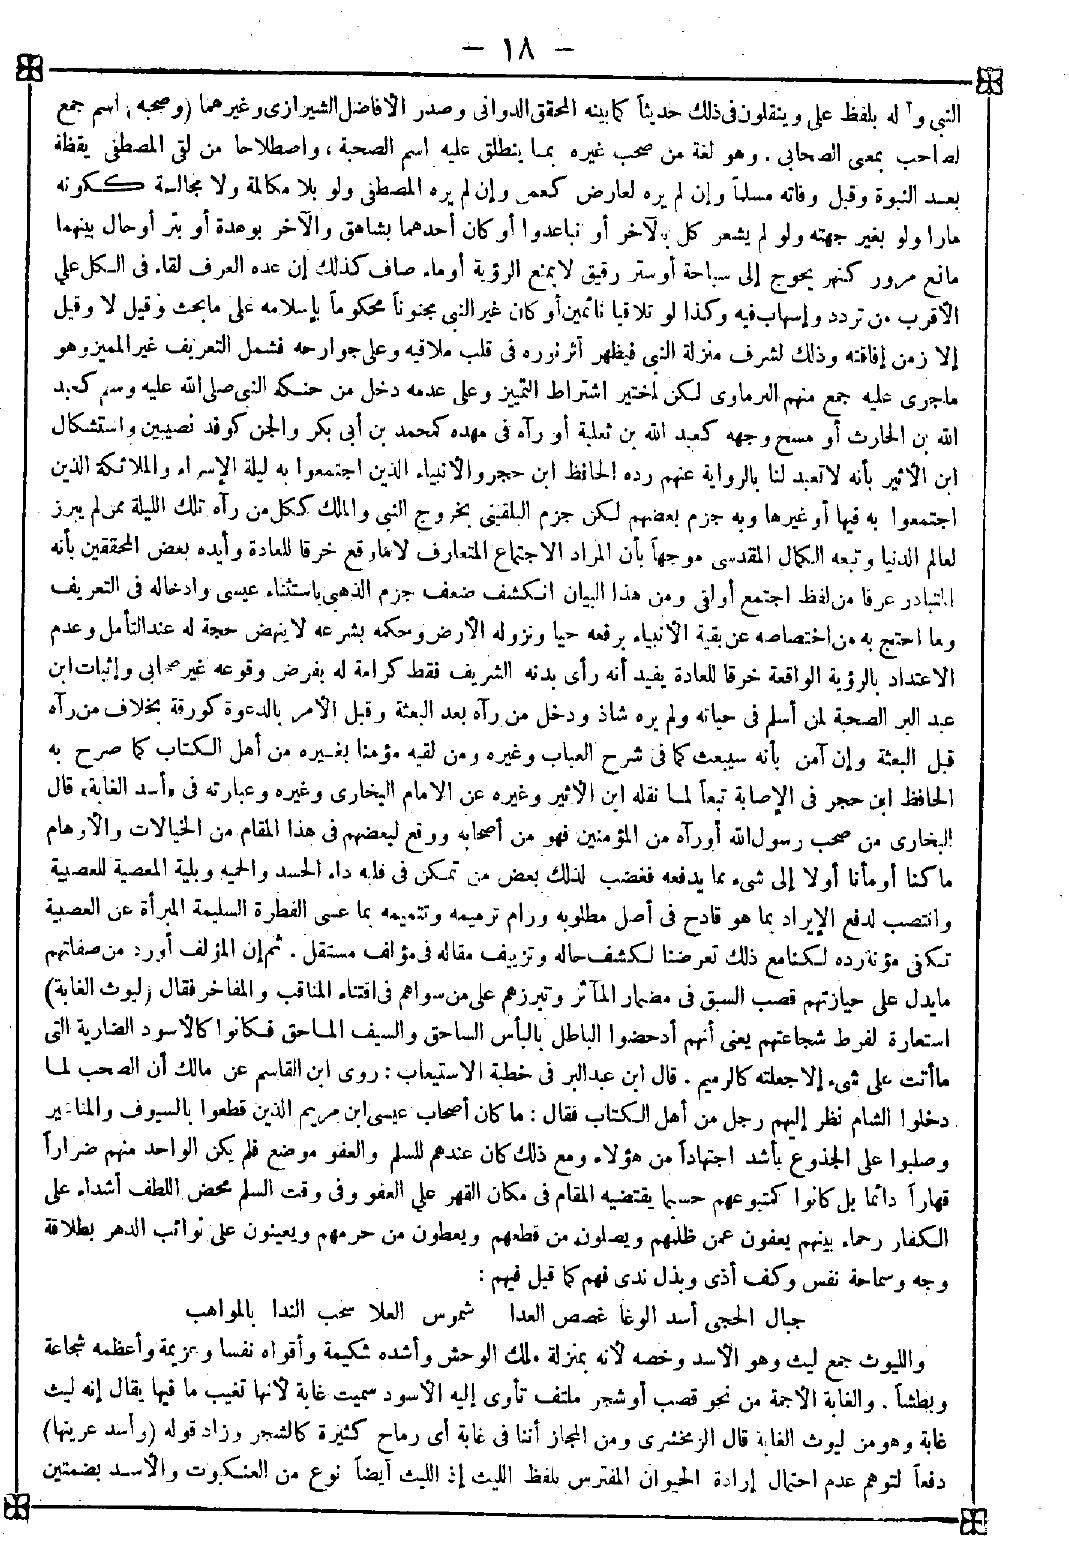 — ١٨ —
النبي وآ له بلفظ على وينقلون فى ذلك حديثاً كما بينه المحقق الدوانى وصدر الأفاضل الشيرازى وغيرهما (وصحبه) اسم جمع
لصاحب بمعنى الصحابى . وهو لغة من صحب غيره بمـا ينطلق عليه اسم الصحبة ، واصطلاحا من لقى المصطفى يقظة
بعـد النبوة وقبل وفاته مسلماً وإن لم يره لعارض كعمى وإن لم يره المصطفى ولو بلا مكالمة ولا مجالسة ككونه
مارا ولو بغير جهته ولو لم يشعر كل بالآخر أو تباعدوا أو كان أحدهما بشاهق والآخر بوهدة أو بئر أو حال بينهما
مانع مرور كنهر يحوج إلى سباحة أو ستر رقيق لا يمنع الرؤية أو ماء صاف كذلك إن عده العرف لقاء فى الكل على
الأقرب من تردد وإسهاب فيه وكذا لو تلاقيا نائمين أو كان غير النبى مجنوناً محكوماً بإسلامه على ما بحث وقيل لا وقيل
إلا زمن إفاقته وذلك لشرف منزلة النبى فيظهر أثر نوره فى قلب ملاقيه وعلى جوارحه فشمل التعريف غير المميز وهو
ماجرى عليه جمع منهم البرماوى لكن اختير اشتراط التمييز وعلى عدمه دخل من حنكه النبى صلى الله عليه وسلم كعبد
الله بن الحارث أو مسح وجهه كعبد الله بن ثعلبة أو رآه فى مهده كمحمد بن أبى بكر والجن كوفد نصيبين واستشكال
ابن الأثير بأنه لا تعبد لنا بالرواية عنهم رده الحافظ ابن حجر والأنبياء الذين اجتمعوا به ليلة الإسراء والملائكة الذين
اجتمعوا به فيها أو غيرها وبه جزم بعضهم لكن جزم البلقينى بخروج النبى والملك ككل من رآه تلك الليلة ممن لم يبرز
لعالم الدنيا وتبعه الكمال المقدسى موجهاً بأن المراد الاجتماع المتعارف لا ما وقع خرقا للعادة وأيده بعض المحققين بأنه
المتبادر عرفا من لفظ اجتمع أو لقى ومن هذا البيان انكشف ضعف جزم الذهبى باستثناء عيسى وادخاله فى التعريف
وما احتج به من اختصاصه عن بقية الأنبياء برفعه حيا ونزوله الأرض وحكمه بشرعه لا ينهض حجة له عند التأمل وعدم
الاعتداد بالرؤية الواقعة خرقا للعادة يفيد أنه رأى بدنه الشريف فقط كرامة له بفرض وقوعه غير صحابى وإثبات ابن
عبد البر الصحبة لمن أسلم فى حياته ولم يره شاذ ودخل من رآه بعد البعثة وقبل الأمر بالدعوة كورقة بخلاف من رآه
قبل البعثة وإن آمن بأنه سيبعث كما فى شرح العباب وغيره ومن لقيه مؤمنا بغـيره من أهل الكتاب كما صرح به
الحافظ ابن حجر فى الإصابة تبعاً لمـا نقله ابن الأثير وغيره عن الامام البخارى وغيره وعبارته فى «أسد الغابة» قال
البخارى من صحب رسول الله أو رآه من المؤمنين فهو من أصحابه ووقع لبعضهم فى هذا المقام من الخيالات والأوهام
ما كنا أومأنا أولا إلى شىء مما يدفعه فغضب لذلك بعض من تمكن فى قلبه داء الحسد والحمية وبلية المعصية للعصبية
وانتصب لدفع الإيراد بما هو قادح فى أصل مطلوبه ورام ترميمه وتتميمه بما عسى الفطرة السليمة المبرأة عن العصبية
تكفى مؤنة رده لكنا مع ذلك تعرضنا لكشف حاله وتزييف مقاله فى مؤلف مستقل . ثم إن المؤلف أورد من صفاتهم
مايدل على حيازتهم قصب السبق فى مضمار المآثر وتبرزهم على من سواهم فى اقتناء المناقب والمفاخر فقال (ليوث الغابة)
استعارة لفرط شجاعتهم يعنى أنهم أدحضوا الباطل بالبأس الساحق والسيف المـاحق فكانوا كالأسود الضارية التى
ما أتت على شىء إلا جعلته كالرميم . قال ابن عبد البر فى خطبة الاستيعاب : روى ابن القاسم عن مالك أن الصحب لمـا
دخلوا الشام نظر إليهم رجل من أهل الكتاب فقال : ما كان أصحاب عيسى ابن مريم الذين قطعوا بالسيوف والمناشير
وصلبوا على الجذوع بأشد اجتهاداً من هؤلاء ومع ذلك كان عندهم للسلم والعفو موضع فلم يكن الواحد منهم ضراراً
قهاراً دائما بل كانوا كمتبوعهم حسبما يقتضيه المقام فى مكان القهر على العفو وفى وقت السلم محض اللطف أشداء على
الكفار رحماء بينهم يعفون عمن ظلمهم ويصلون من قطعهم ويعطون من حرمهم ويعينون على نوائب الدهر بطلاقة
وجه وسماحة نفس وكف أذى وبذل ندى فهم كما قيل فيهم :
جبال الحجى أسد الوغا غصص العدا شموس العلا سحب الندا بالمواهب
والليوث جمع ليث وهو الأسد وخصه لأنه بمنزلة ملك الوحش وأشده شكيمة وأقواه نفسا وعزيمة وأعظمه شجاعة
وبطشاً . والغابة الأجمة من نحو قصب أو شجر ملتف تأوى إليه الأسود سميت غابة لأنها تغيب ما فيها يقال إنه ليث
غابة وهو من ليوث الغابة قال الزمخشرى ومن المجاز أتنا فى غابة أى رماح كثيرة كالشجر وزاد قوله (وأسد عرينها)
دفعاً لتوهم عدم احتمال إرادة الحيوان المفترس بلفظ الليث إذ الليث أيضاً نوع من العنكبوت والأسد بضمتين